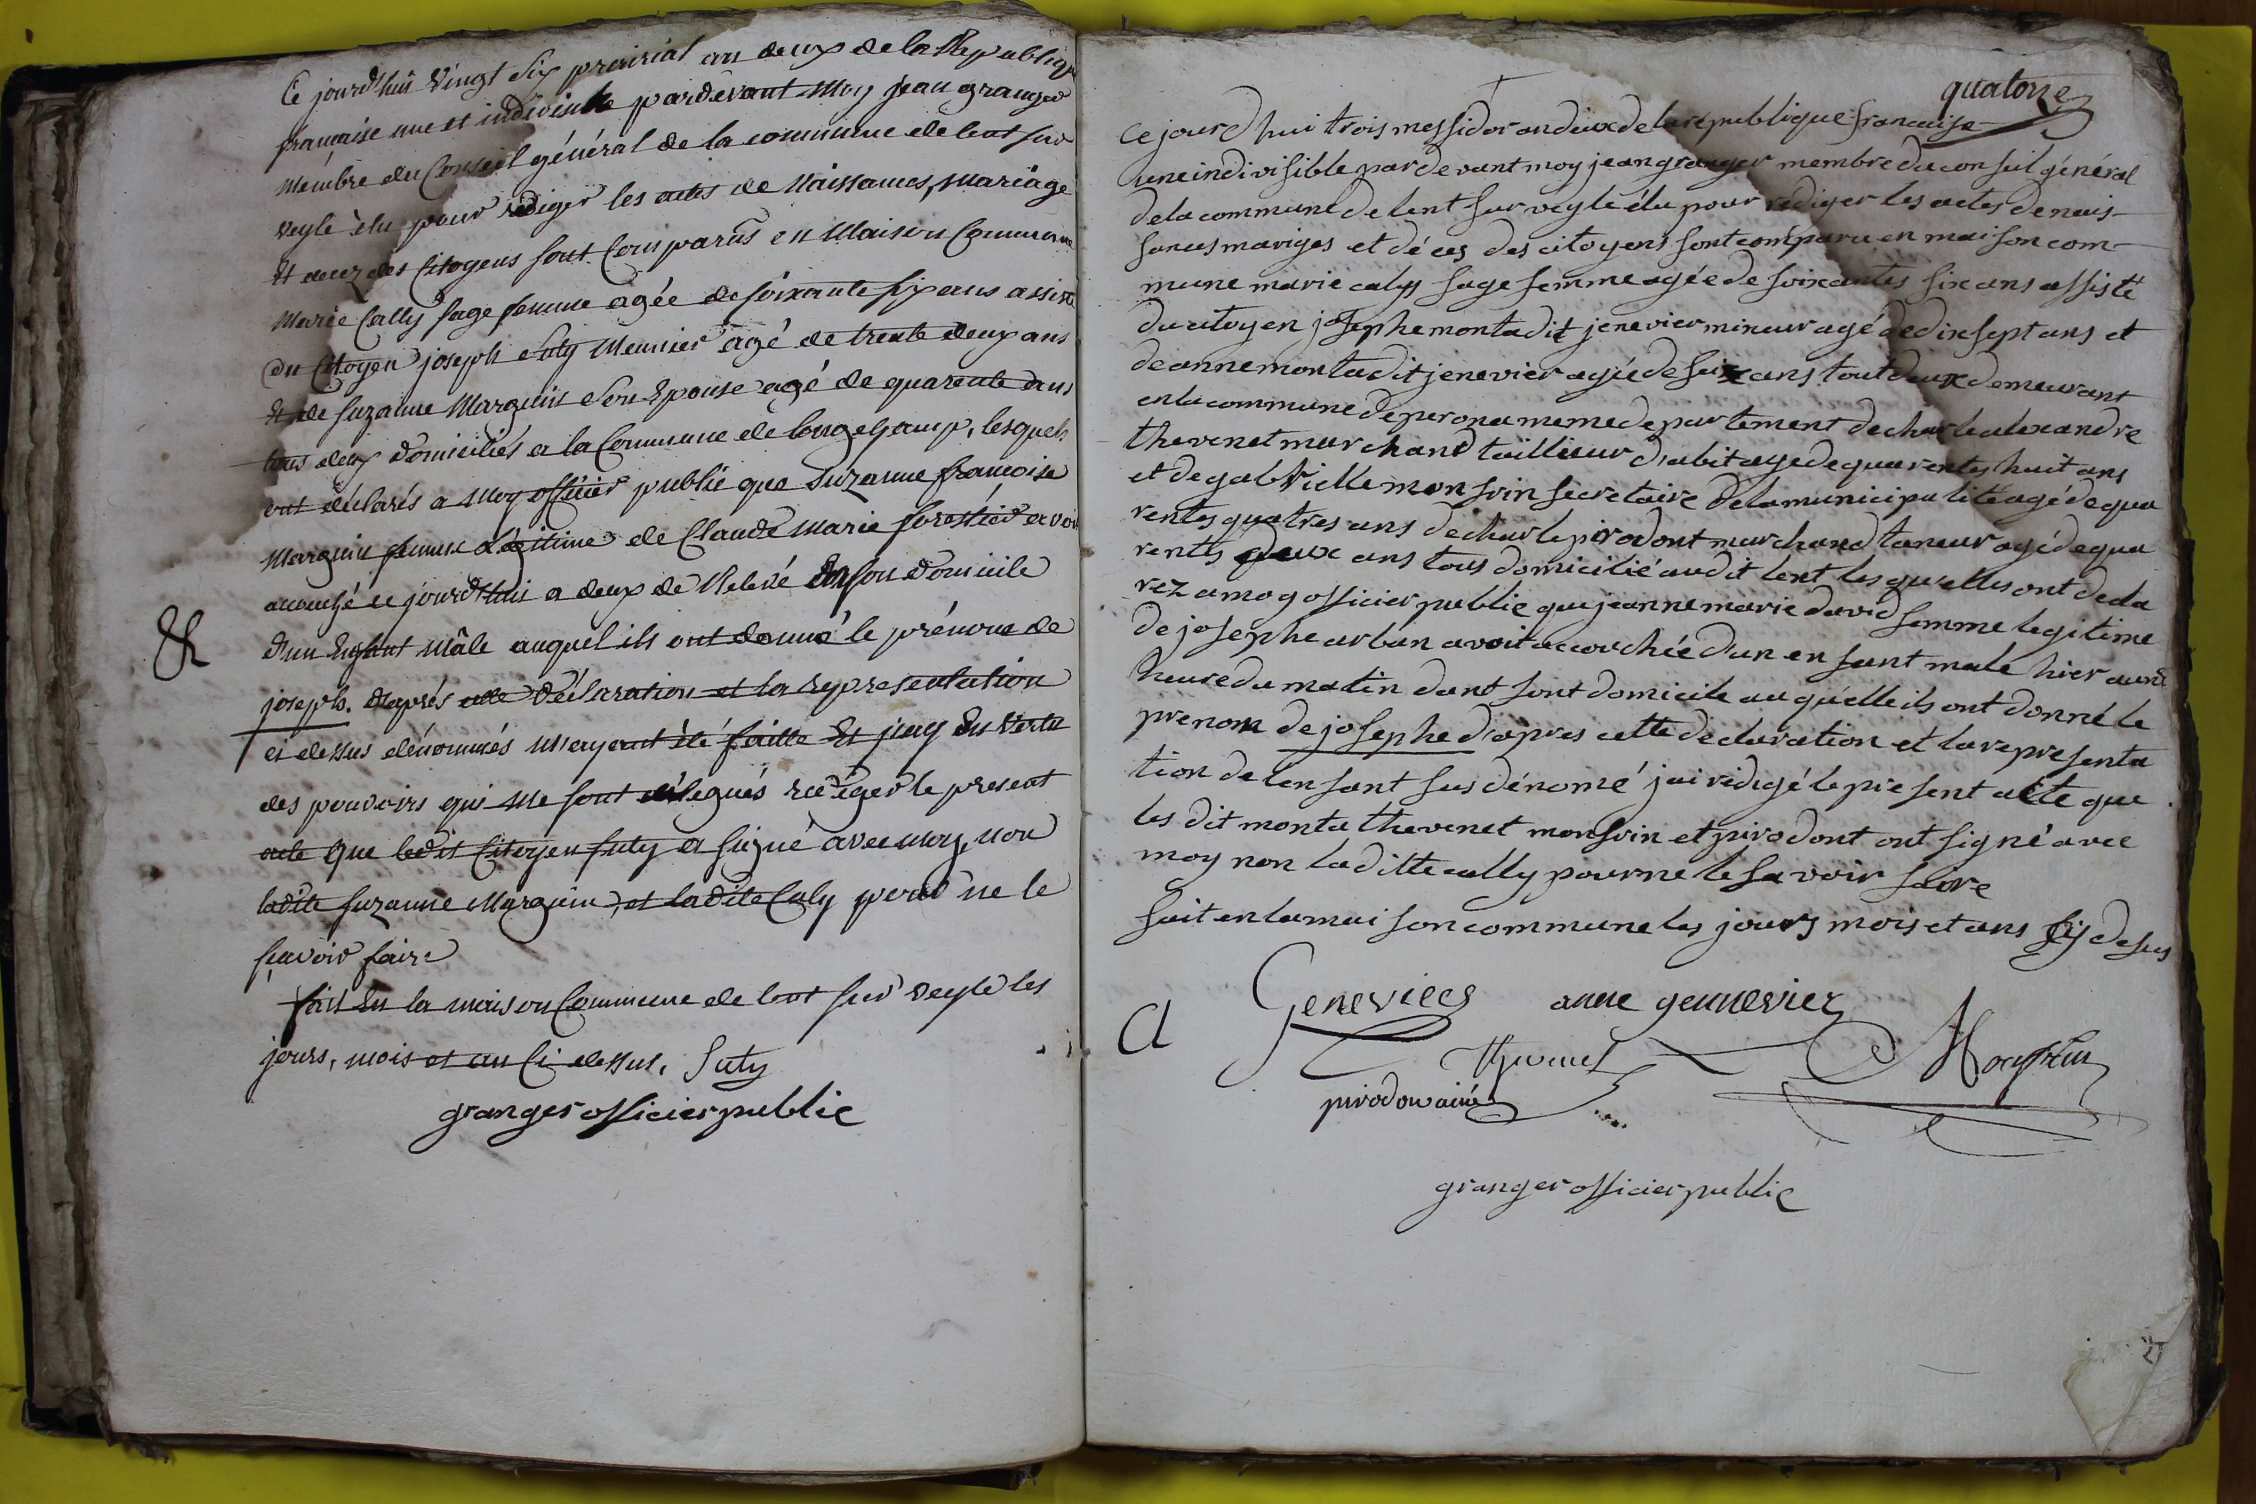 Ce jourd'hui vingt six prairial an deux de la Republiq
française une et indivisible pardevant Moy jean granger
Membre du Conseil général de la commune de lent sur
veyle élu pour rédiger les actes de Naissances, Mariage
Et decez des Citoyens sont Comparus en Maison Commune
Marie Cally sage femme agée de soixante six ans assisté
du Citoyen joseph suty Meunier agé de trente deux ans
Et de suzanne Marguin son Epouse agé de quarente ans
tous deux domiciliés a la Commune de longechamp, lesquels
ont déclarés a Moy officier public que suzanne françoise
Marguin femme légitime de Claude Marie forestier avoit
accouché ce jourd'hui a deux de Relevé En son domicile
d'un Enfant Mâle auquel ils ont donné le prénom de
joseph. d'après cette déclaration et la representation
ci dessus dénommés m'ayant été faitte Et j'ay En vertu
des pouvoirs qui me sont délegués redéger le present
acte que ledit Citoyen suty a signé avec moy, non
ladite suzanne Marguin, et ladite Caly pour ne le
sçavoir faire
fait En la maison Commune de lent sur veyle les
jours, mois et an Ci dessus. Suty
granger officier public
quatorze
ce jourd'hui trois messidor an deux de la republique francaise
une indivisible par devant moy jean granger membre du conseil général
de la commune de lent sur veyle élu pour rediger les actes de nais-
sances mariges et déces des citoyens sont comparu en maison com-
mune marie caly sage femme agée de soixantes six ans assisté
du citoyen josephe monta dit jenevier mineur agé de dix sept ans et
de anne monta dit jenevier agée de seize ans tout deux demeurant
en la commune de perona meme departement de charle alexandre
thevenet marchand taillieur d'abit age de quarentes huit ans
et de gabrielle monsoin secretaire de la municipalité agé de qua
rentes quatres ans de charle pirodont marchand taneur agé de qua
rentes deux ans tous domicilié au dit lent lesquelles ont decla
rez a moy officier public que jeanne marie david femme legitime
de josephe arban avoit accouchée d'un enfant male hier a une
heure du matin dant sont domicile au quelle ils ont donné le
prenom de josephe d'apres cette declaration et la represanta
tion de lenfant sus dénomé jai redigé le present acte que
les dit monta thevenet monsoin et pirodont ont signé avec
moy non laditte cally pour ne le savoir faire
fait en la maison commune les jours mois et ans sy desus
Genevieer anne gennevier
thevenet Monsoin
pirodon ainé
granger officier public